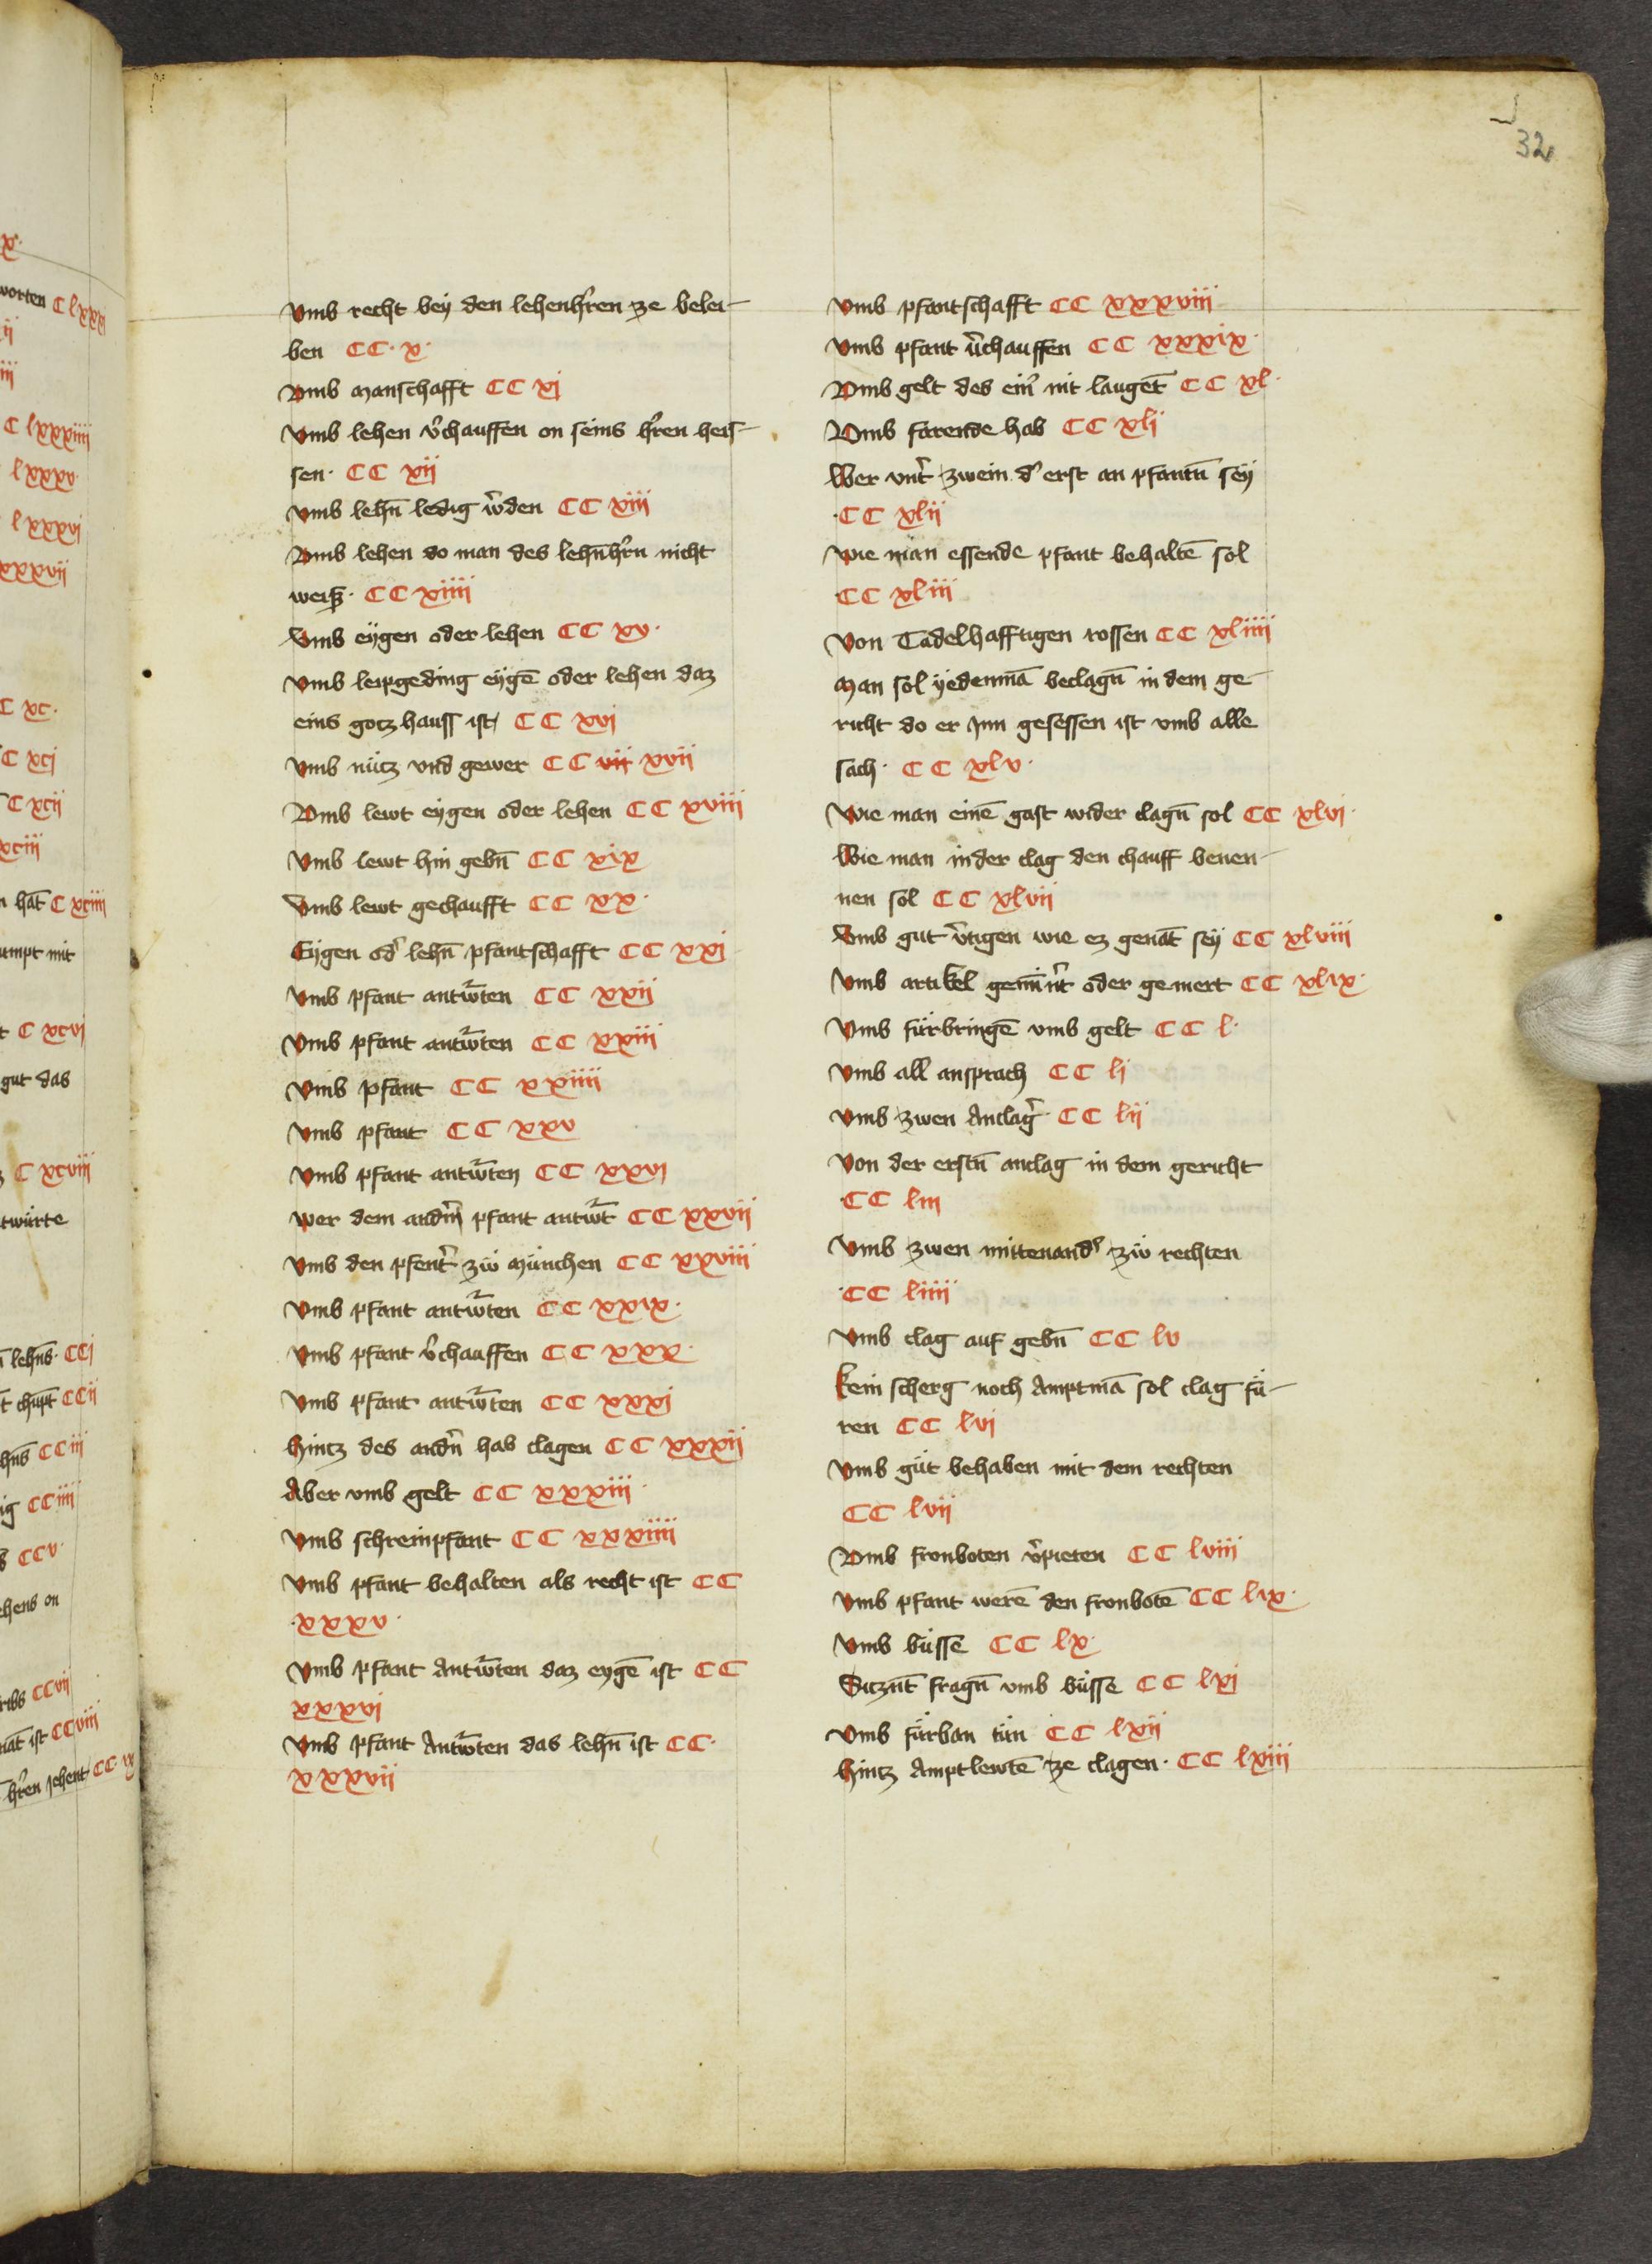 32
Vmb recht bey den lehenhr̄en ze belei-
ben CC· x·
Vmb manschafft CC xj
Vmb lehen v̄chauffen on seins hr̄en heis-
sen· CC xij
Vmb lehn̄ ledig w̄den CC xiii
Vmb lehen do man des lehn̄hr̄n nicht
weiß· CC xiiii
Vmb eÿgen oder lehen CC xv·
Vmb leipgeding eygē oder lehen daz
eins gotzhauss ist CC xvj
Vmb nütz vnd gewer CC vii xvii
Vmb lewt eygen oder lehen CC xviii
Vmb lewt hin gebn̄ CC xix
Vmb lewt gechaufft CC xx·
Eygen od̄ lehn̄ pfantschafft CC xxj
Vmb pfant antw̄ten CC xxij
Vmb pfant antw̄ten CC xxiii
Vmb pfant CC xxiiii
Vmb pfant CC xxv
Vmb pfant antw̄ten CC xxvj
Wer dem andn̄ pfant antw̄t CC xxvij
Vmb den pfent̄ zü München CC xxviii
Vmb pfant antw̄ten CC xxix·
Vmb pfant v̄chauffen CC xxx·
Vmb pfant antw̄ten CC xxxj
Hintz des andn̄ hab clagen CC xxxij
Aber vmb gelt CC xxxiii·
Vmb schreinpfant CC xxxiiii
Vmb pfant behalten als recht ist CC
·xxxv·
Vmb pfant Antw̄ten daz eygē ist CC
xxxvj
Vmb pfant Antw̄ten das lehn̄ ist CC·
xxxvij
Vmb pfantschafft CC xxxviii
Vmb pfant v̄chauffen CC xxxix·
Vmb gelt des ein̄ nit laugēt CC xl·
Vmb farende hab CC xlj
Wer vnt̄ zwein d̄ erst an pfantn̄ sey
·CC xlij
Wie man essende pfant behaltē sol
·CC xliii
Von Tadelhafftigen rossen CC xliiii
Man sol yedenmā beclagn̄ in dem ge-
richt do er jnn gesessen ist vmb alle
sach· CC xlv·
Wie man einē gast wider clagn̄ sol CC xlvj·
Wie man in der clag den chauff benen-
nen sol CC xlvij
Vmb gut v̄tigen wie ez genāt sey CC xlviii
Vmb artikel gemīn̄t oder gemert CC xlix·
Vmb fürbringē vmb gelt CC l·
Vmb all ansprach CC lj
Vmb zwen Anclaḡ· CC lij
Von der erstn̄ anclag in dem gericht
·CC liii
Vmb zwen mittenand̄ zü rechten
·CC liiii
Vmb clag auf gebn̄ CC lv
Kein scherg noch Amptmā sol clag fü-
ren CC lvj
Vmb güt behaben mit dem rechten
CC lvij
Vmb fronboten v̄pieten CC lviii
Vmb pfant werē den fronbotē CC lix·
Vmb büsse CC lx·
Sitznt̄ fragn̄ vmb büsse CC lxj
Vmb fürban tün CC lxij
Hintz Amptlewtē ze clagen· CC lxiii